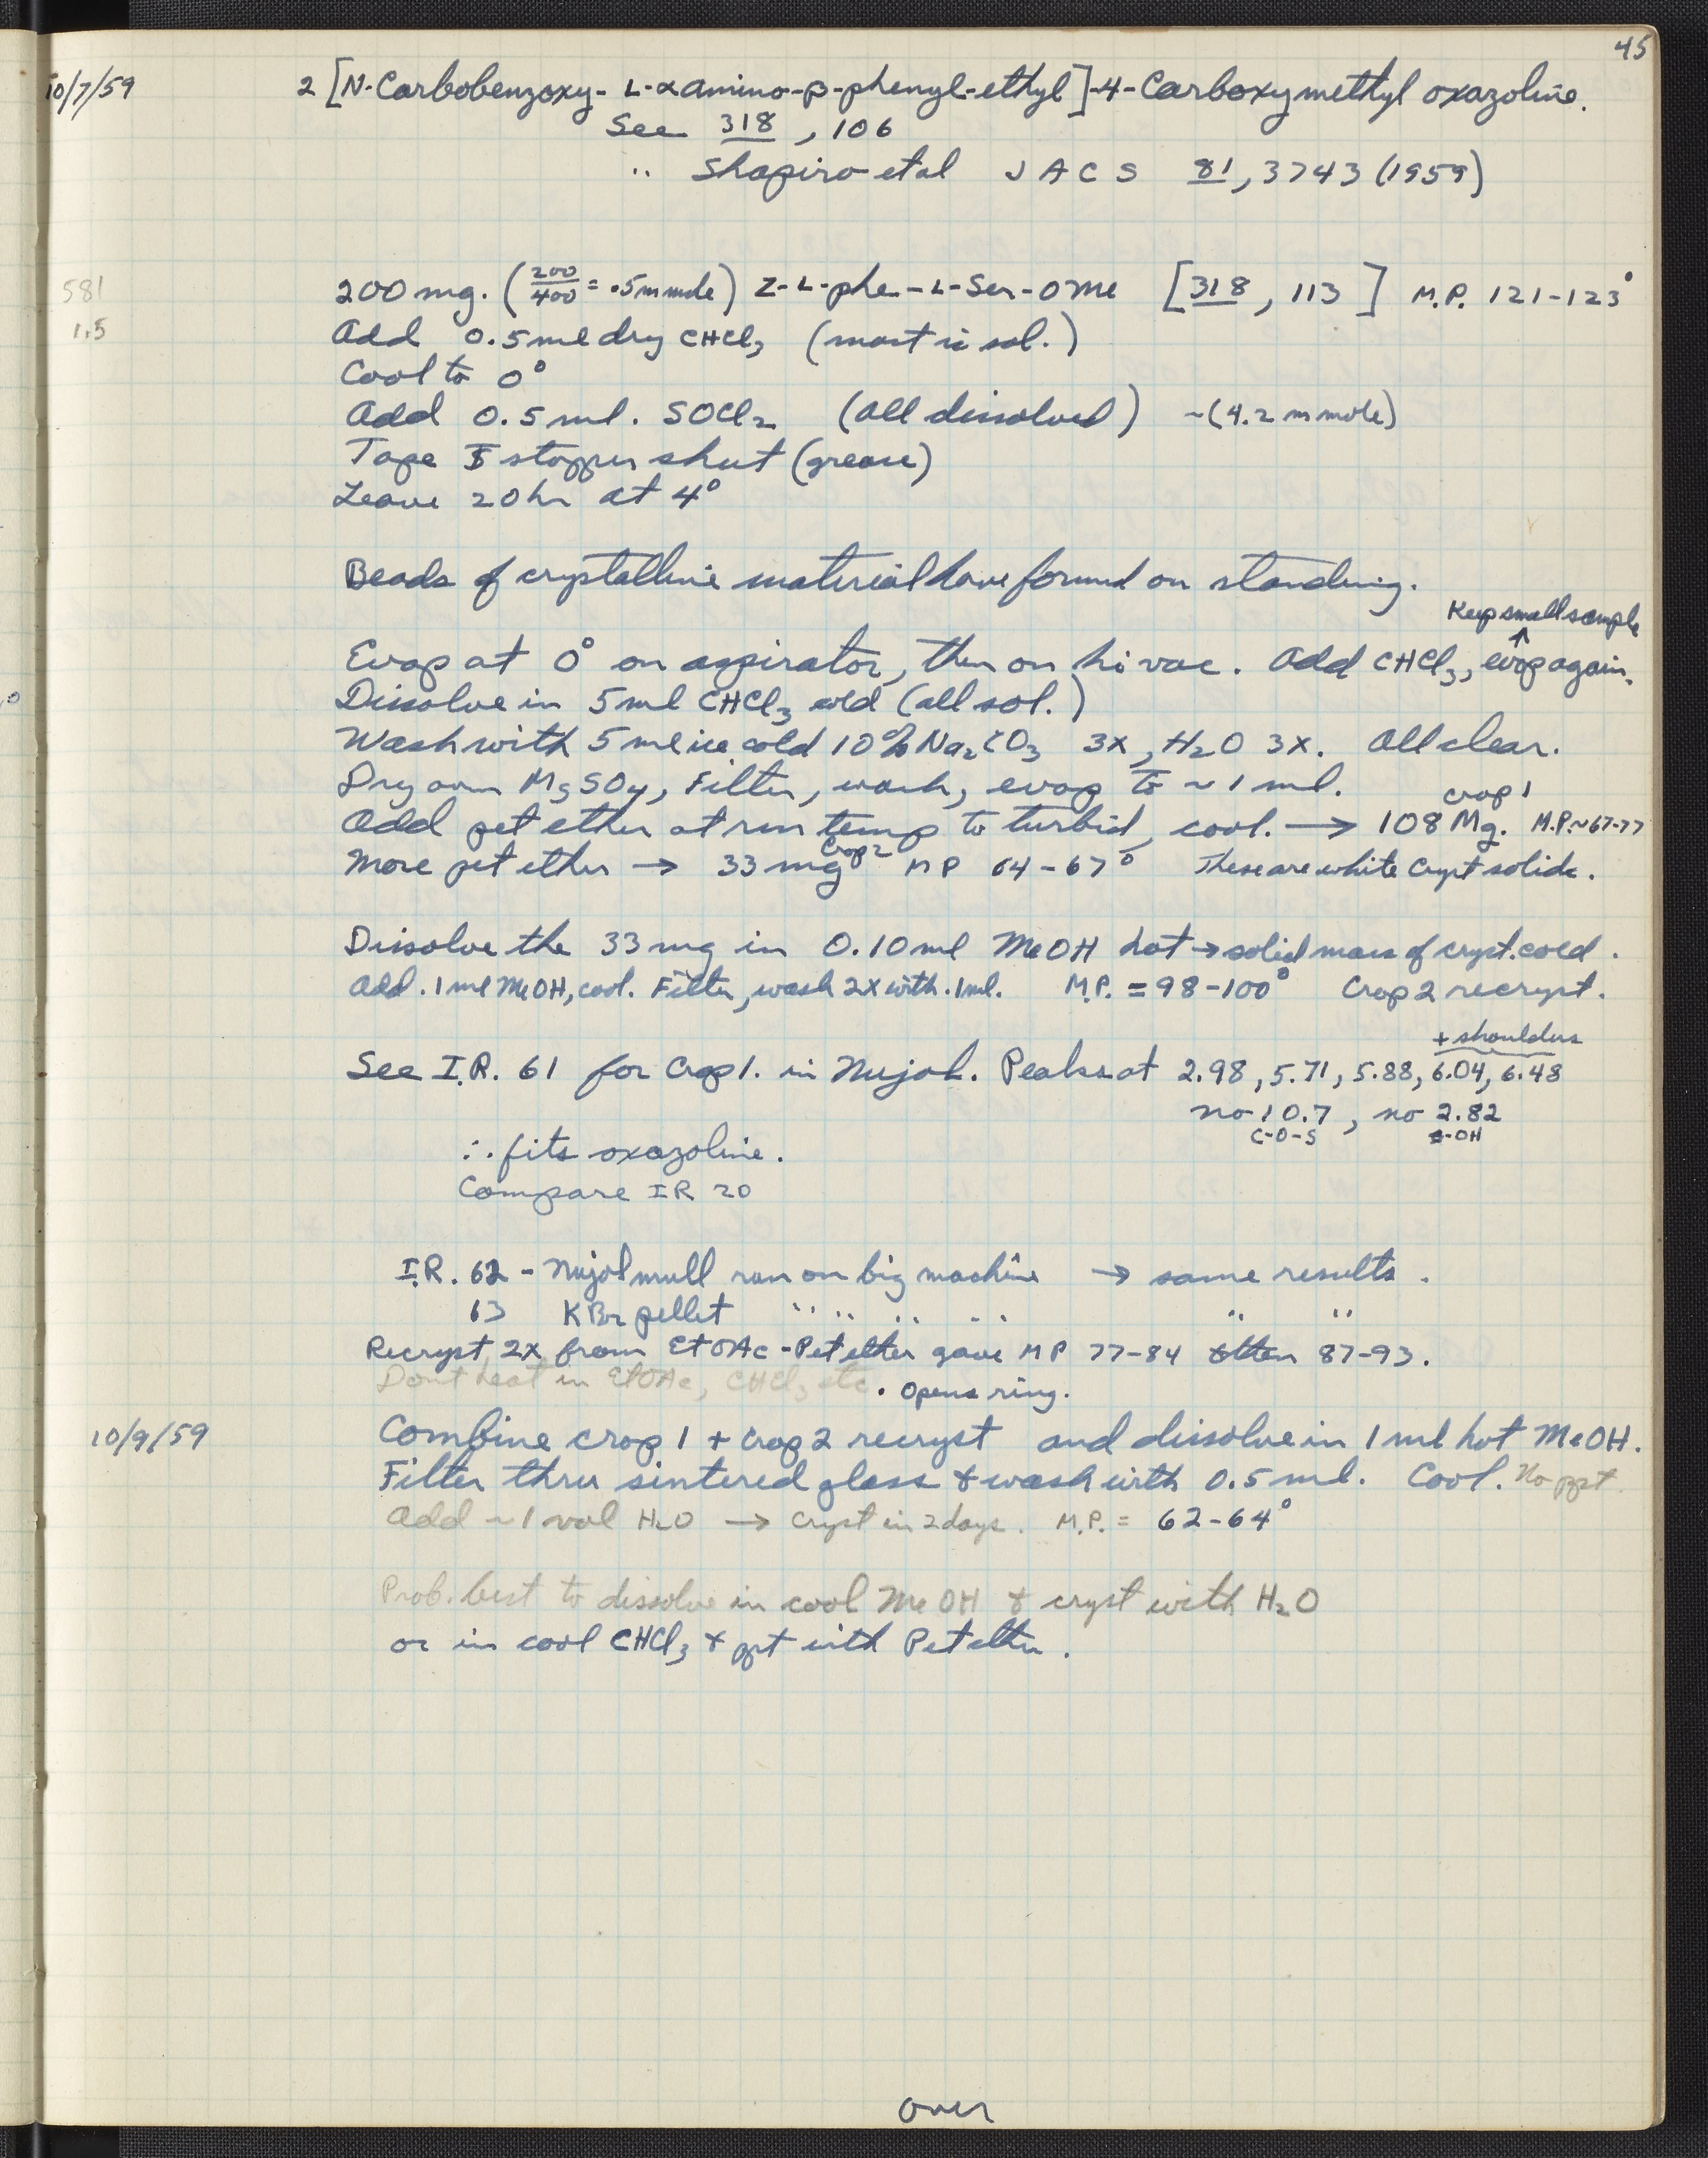 45
10/7/59 2 [N-Carbobenzoxy-L-αamino-β-phenyl-ethyl]-4-Carboxymethyl oxazoline.
See 318, 106
" Shapiro etal JACS 81, 3743 (1959)
581 200 mg. (200/400 = .5mmole) Z-L-phe-L-Ser-OMe [318, 113] M.P. 121-123°
1.5 Add 0.5 ml dry CHCl3 (most is sol.)
Cool to 0°
Add 0.5 ml. SOCl2 (all dissolved) ~(4.2 mmole)
Tape stopper shut (grease)
Leave 20hr at 4°
Beads of crystalline material have formed on standing.
Keep small sample
↑
Evap at 0° on aspirator, then on hi vac. Add CHCl3, evap again.
Dissolve in 5ml CHCl3 cold (all sol.)
Wash with 5 ml ice cold 10% Na2CO3 3x, H2O 3x. All clear.
Dry over MgSO4, Filter, wash, evap to ~1 ml.
crop 1
Add pet ether at rm temp to turbid, cool. → 108 Mg. M.P.~67-77
Crop 2
More pet ether → 33 mg MP 64-67° These are white Cryst solids.
Dissolve the 33 mg in 0.10 ml MeOH hot → solid mass of cryst. cold.
Add .1 ml MeOH, cool. Filter, wash 2x with .1ml. M.P. = 98-100° Crop 2 recryst.
+ shoulders
See I.R. 61 for Crop 1. in Nujol. Peaks at 2.98, 5.71, 5.88, 6.04, 6.48
no 10.7, no 2.82
C-O-S -OH
∴ fits oxazoline.
Compare IR 20
I.R. 62 - Nujol mull run on big machine → same results.
63 KBr pellet " " " " " "
Recryst 2x from EtOAc-Pet ether gave MP 77-84 then 87-93.
Dont heat in EtOAc, CHCl3 etc. Opens ring.
10/9/59 Combine crop 1 + Crop 2 recryst and dissolve in 1 ml hot MeOH.
Filter thru sintered glass & wash with 0.5 ml. Cool. No ppt.
Add ~1 vol H2O → Cryst in 2 days. M.P. = 62-64°
Prob. best to dissolve in cool MeOH & cryst with H2O
or in cool CHCl3 & ppt with Pet ether.
over